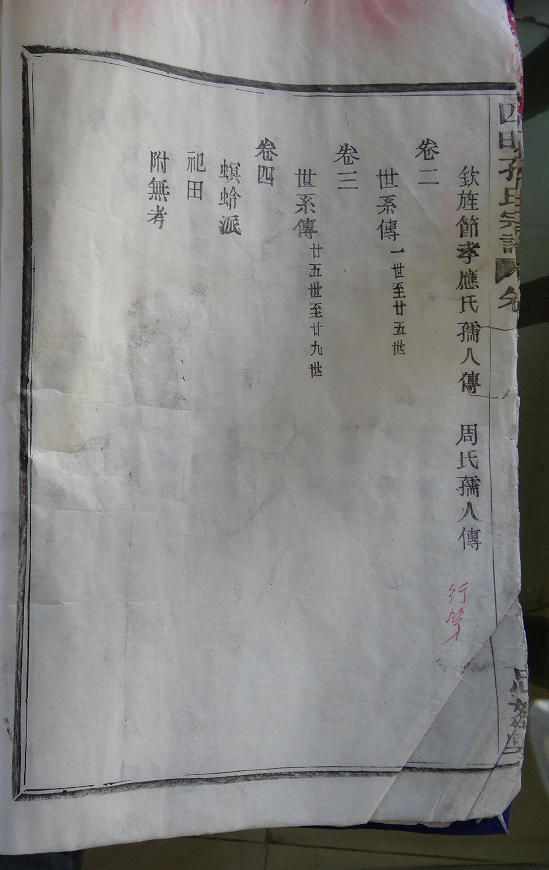 四明孔氏宗譜 卷
欽旌節孝應氏孺人傳 周氏孺人傳
卷二
世系傳 一世至廿五世
卷三
世系傳 廿五世至廿九世
卷四
螟蛉派
祀田
附無考